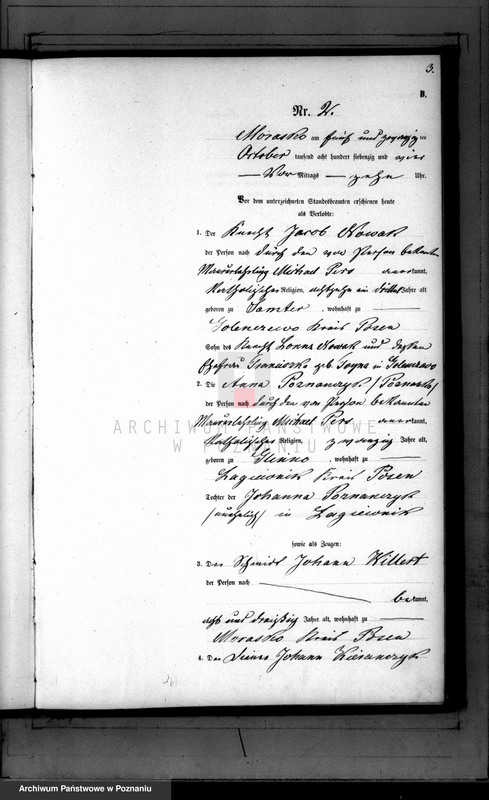 3.
B.
Nr. 2.
Morasko am fünf und zwanzigten
October tausend acht hundert siebenzig und vier
Vor Mittags zehn Uhr.
Vor dem unterzeichneten Standesbeamten erschienen heute
als Verlobte:
1. Der Knecht Jacob Nowak
der Person nach durch den von Person bekannten
Maurerlehrling Michael Pers anerkannt,
Katholischer Religion, Jahre alt
geboren zu Samter, wohnhaft zu
Golenczewo Kreis Posen
Sohn des Knecht Nowak und dessen
Ehefrau Franciszka geb. in Golenczewo
2. Die Anna Poznanczyk /Poznanska/
der Person nach durch den von Person bekannten
Maurerlehrling Michael Pers anerkannt,
Katholischer Religion, zwanzig Jahre alt,
geboren zu Glinno, wohnhaft zu
Lagiewnik Kreis Posen
Tochter der Johanna Poznanczyk
/unehelich/ in Lagiewnik
sowie als Zeugen:
3. Der Schmidt Johann Killert
der Person nach
bekannt,
acht und dreißig Jahre alt, wohnhaft zu
Morasko Kreis Posen
4. Der Johann
ARCHIWUM PAŃSTWOWE
W POZNANIU
Archiwum Państwowe w Poznaniu